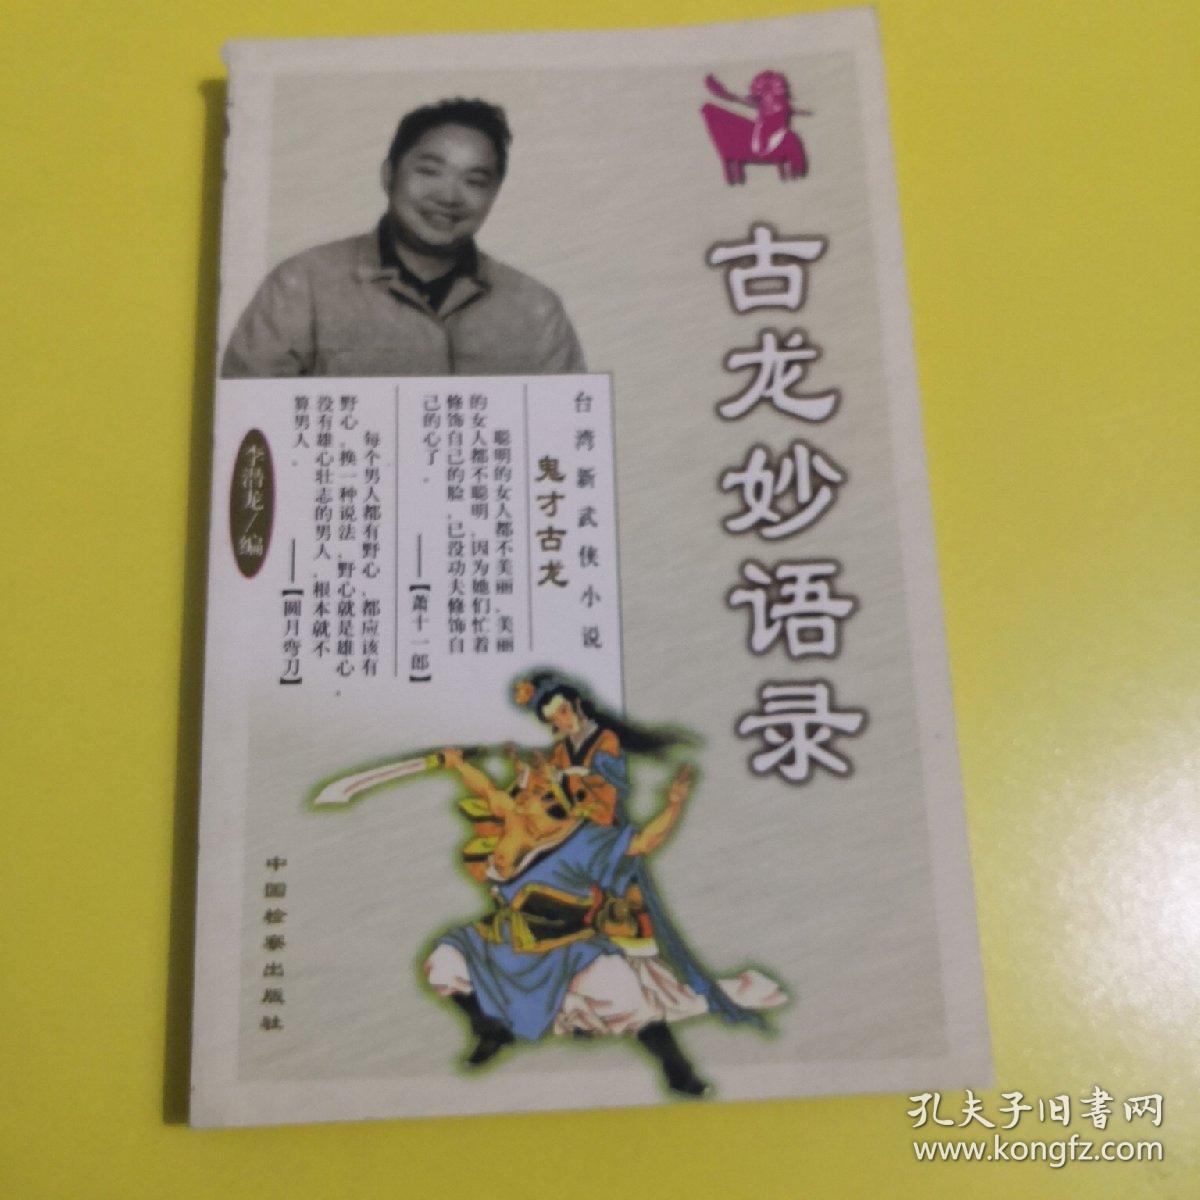 古龙妙语录
台湾新武侠小说
鬼才古龙
聪明的女人都不美丽、美丽
的女人都不聪明,因为她们忙着
修饰自己的脸,已没功夫修饰自
己的心了。
——【萧十一郎】
每个男人都有野心,都应该有
野心,换一种说法,野心就是雄心,
没有雄心壮志的男人,根本就不
算男人。
——【圆月弯刀】
李潜龙/编
中国检察出版社
孔夫子旧书网
www.kongfz.com